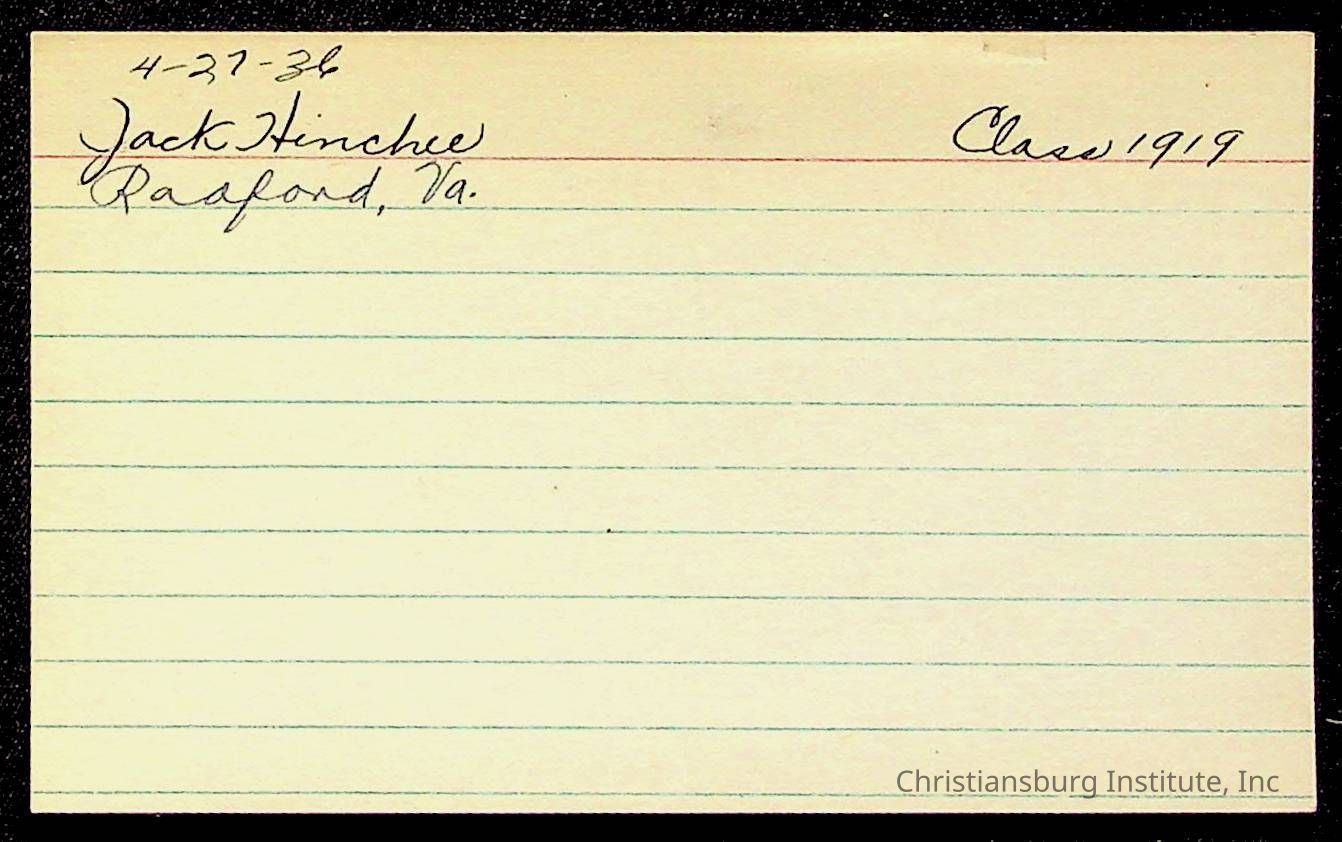 4-27-36
Jack Hinchee Class 1919
Radford, Va.
Christiansburg Institute, Inc